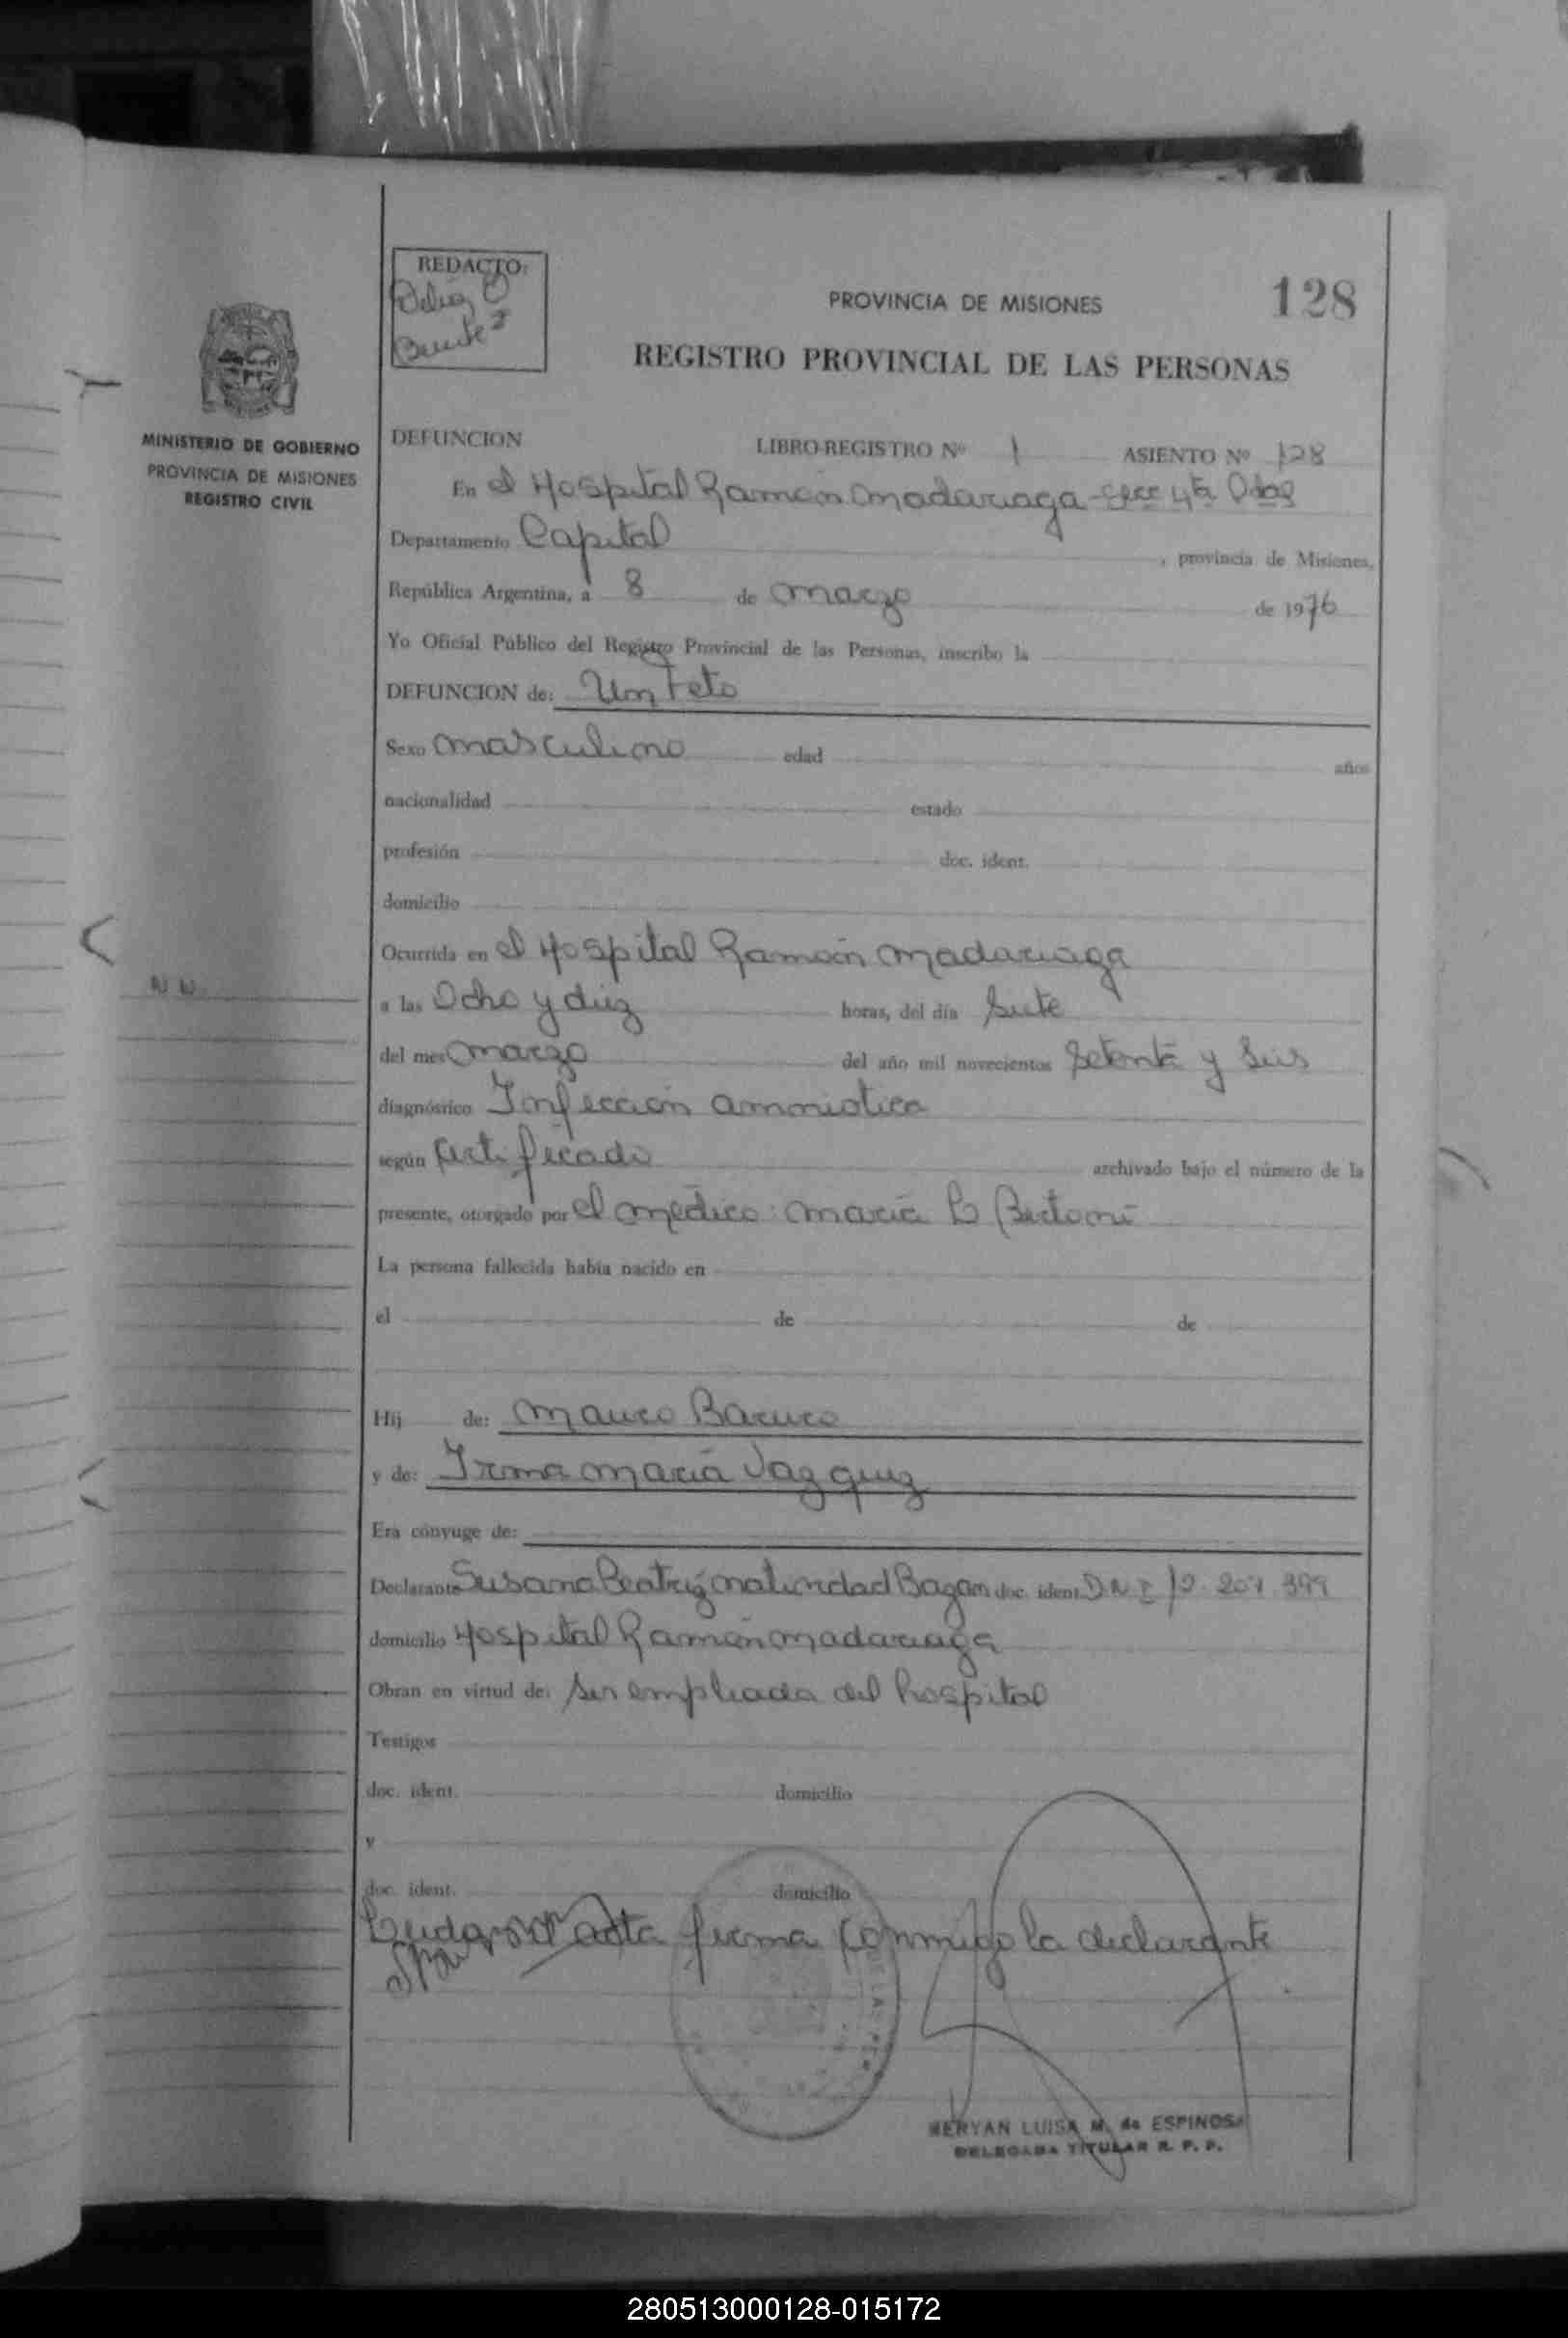 REDACTO:
Delia O
Benitez
PROVINCIA DE MISIONES
128
REGISTRO PROVINCIAL DE LAS PERSONAS
MINISTERIO DE GOBIERNO
PROVINCIA DE MISIONES
REGISTRO CIVIL
DEFUNCION LIBRO-REGISTRO Nº 1 ASIENTO Nº 128
En el Hospital Ramón Madariaga - Secc 4ta Pdas
Departamento Capital , provincia de Misiones,
República Argentina, a 8 de marzo de 1976
Yo Oficial Público del Registro Provincial de las Personas, inscribo la
DEFUNCION de: Un Feto
Sexo masculino edad años
nacionalidad estado
profesión doc. ident.
domicilio
Ocurrida en el Hospital Ramón Madariaga
N N
a las Ocho y diez horas, del día Siete
del mes marzo del año mil novecientos Setenta y Seis
diagnóstico Infección amniotica
según Certificado archivado bajo el número de la
presente, otorgado por el médico: María Bertoni
La persona fallecida había nacido en
el de de
Hij de: Mauro
y de: Irma María Vazquez
Era cónyuge de:
Declarante Susana Beatriz Natividad Bazan doc. ident. DNI 12.207.399
domicilio Hospital Ramón Madariaga
Obran en virtud de: ser empleada del hospital
Testigos
doc. ident. domicilio
y
doc. ident. domicilio
acta firma conmigo la declarante
MERYAN LUISA M. de ESPINOSA
DELEGADA TITULAR R. P. P.
280513000128-015172